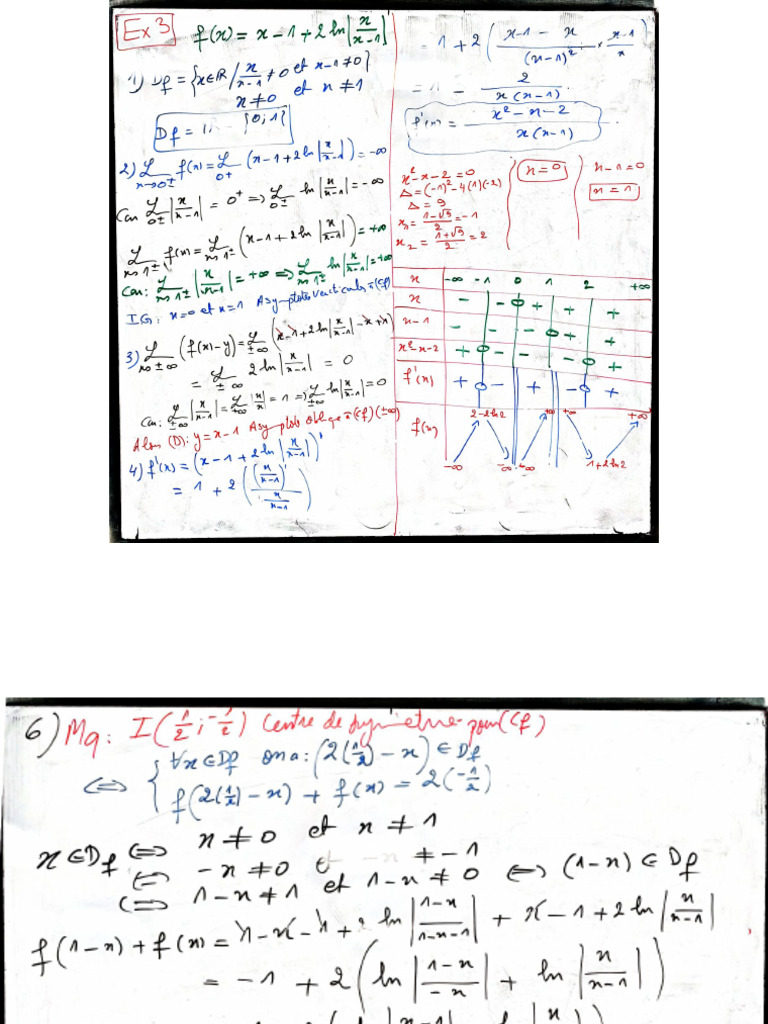 Ex 3
f(x) = x - 1 + 2 ln|x/(x-1)|
1) Df = {x∈R / x/(x-1) ≠ 0 et x-1 ≠ 0}
x ≠ 0 et x ≠ 1
Df = {0,1}
2) L_{x→0±} f(x) = L_{0+} (x-1+2ln|x/(x-1)|) = -∞
Car L_{0±} |x/(x-1)| = 0⁺ ⇒ L_{0±} ln|x/(x-1)| = -∞
L_{x→1±} f(x) = L_{x→1±} (x-1+2ln|x/(x-1)|) = +∞
Car: L_{x→1±} |x/(x-1)| = +∞ ⇒ L_{x→1±} ln|x/(x-1)| = +∞
I.G: x=0 et x=1 Asymptotes verticales à (Cf)
3) L_{x→±∞} (f(x)-y) = L_{±∞} (x-1+2ln|x/(x-1)| - x + 1)
= L_{±∞} 2ln|x/(x-1)| = 0
Car: L_{±∞} |x/(x-1)| = L_{±∞} |x/x| = 1 ⇒ L_{±∞} ln|x/(x-1)| = 0
Alors (D): y = x-1 Asymptote Oblique à (Cf) (±∞)
4) f'(x) = (x-1+2ln|x/(x-1)|)'
= 1 + 2((x/(x-1))' / (x/(x-1)))
= 1 + 2((x-1-x)/(x-1)² × (x-1)/x)
= 1 - 2/(x(x-1))
f'(x) = (x²-x-2)/(x(x-1))
x²-x-2=0
Δ = (-1)²-4(1)(-2)
Δ = 9
x₁ = (1-√9)/2 = -1
x₂ = (1+√9)/2 = 2
x=0
x-1=0
x=1
x -∞ -1 0 1 2 +∞
x - - 0 + + +
x-1 - - - 0 + +
x²-x-2 + 0 - - - 0 +
f'(x) + 0 - + - 0 +
f(x) -∞ 2-2ln2 -∞ -∞ +∞ +∞ 1+2ln2 +∞
6) Mq: I(1/2 ; -1/2) Centre de symétrie pour (Cf)
⇔ { ∀x∈Df on a: (2(1/2)-x) ∈ Df
f(2(1/2)-x) + f(x) = 2(-1/2)
x∈Df ⇔ x ≠ 0 et x ≠ 1
⇔ -x ≠ 0 et -x ≠ -1
⇔ 1-x ≠ 1 et 1-x ≠ 0 ⇔ (1-x) ∈ Df
f(1-x) + f(x) = 1-x-1+2 ln|(1-x)/(1-x-1)| + x-1+2 ln|x/(x-1)|
= -1 + 2(ln|(1-x)/(-x)| + ln|x/(x-1)|)